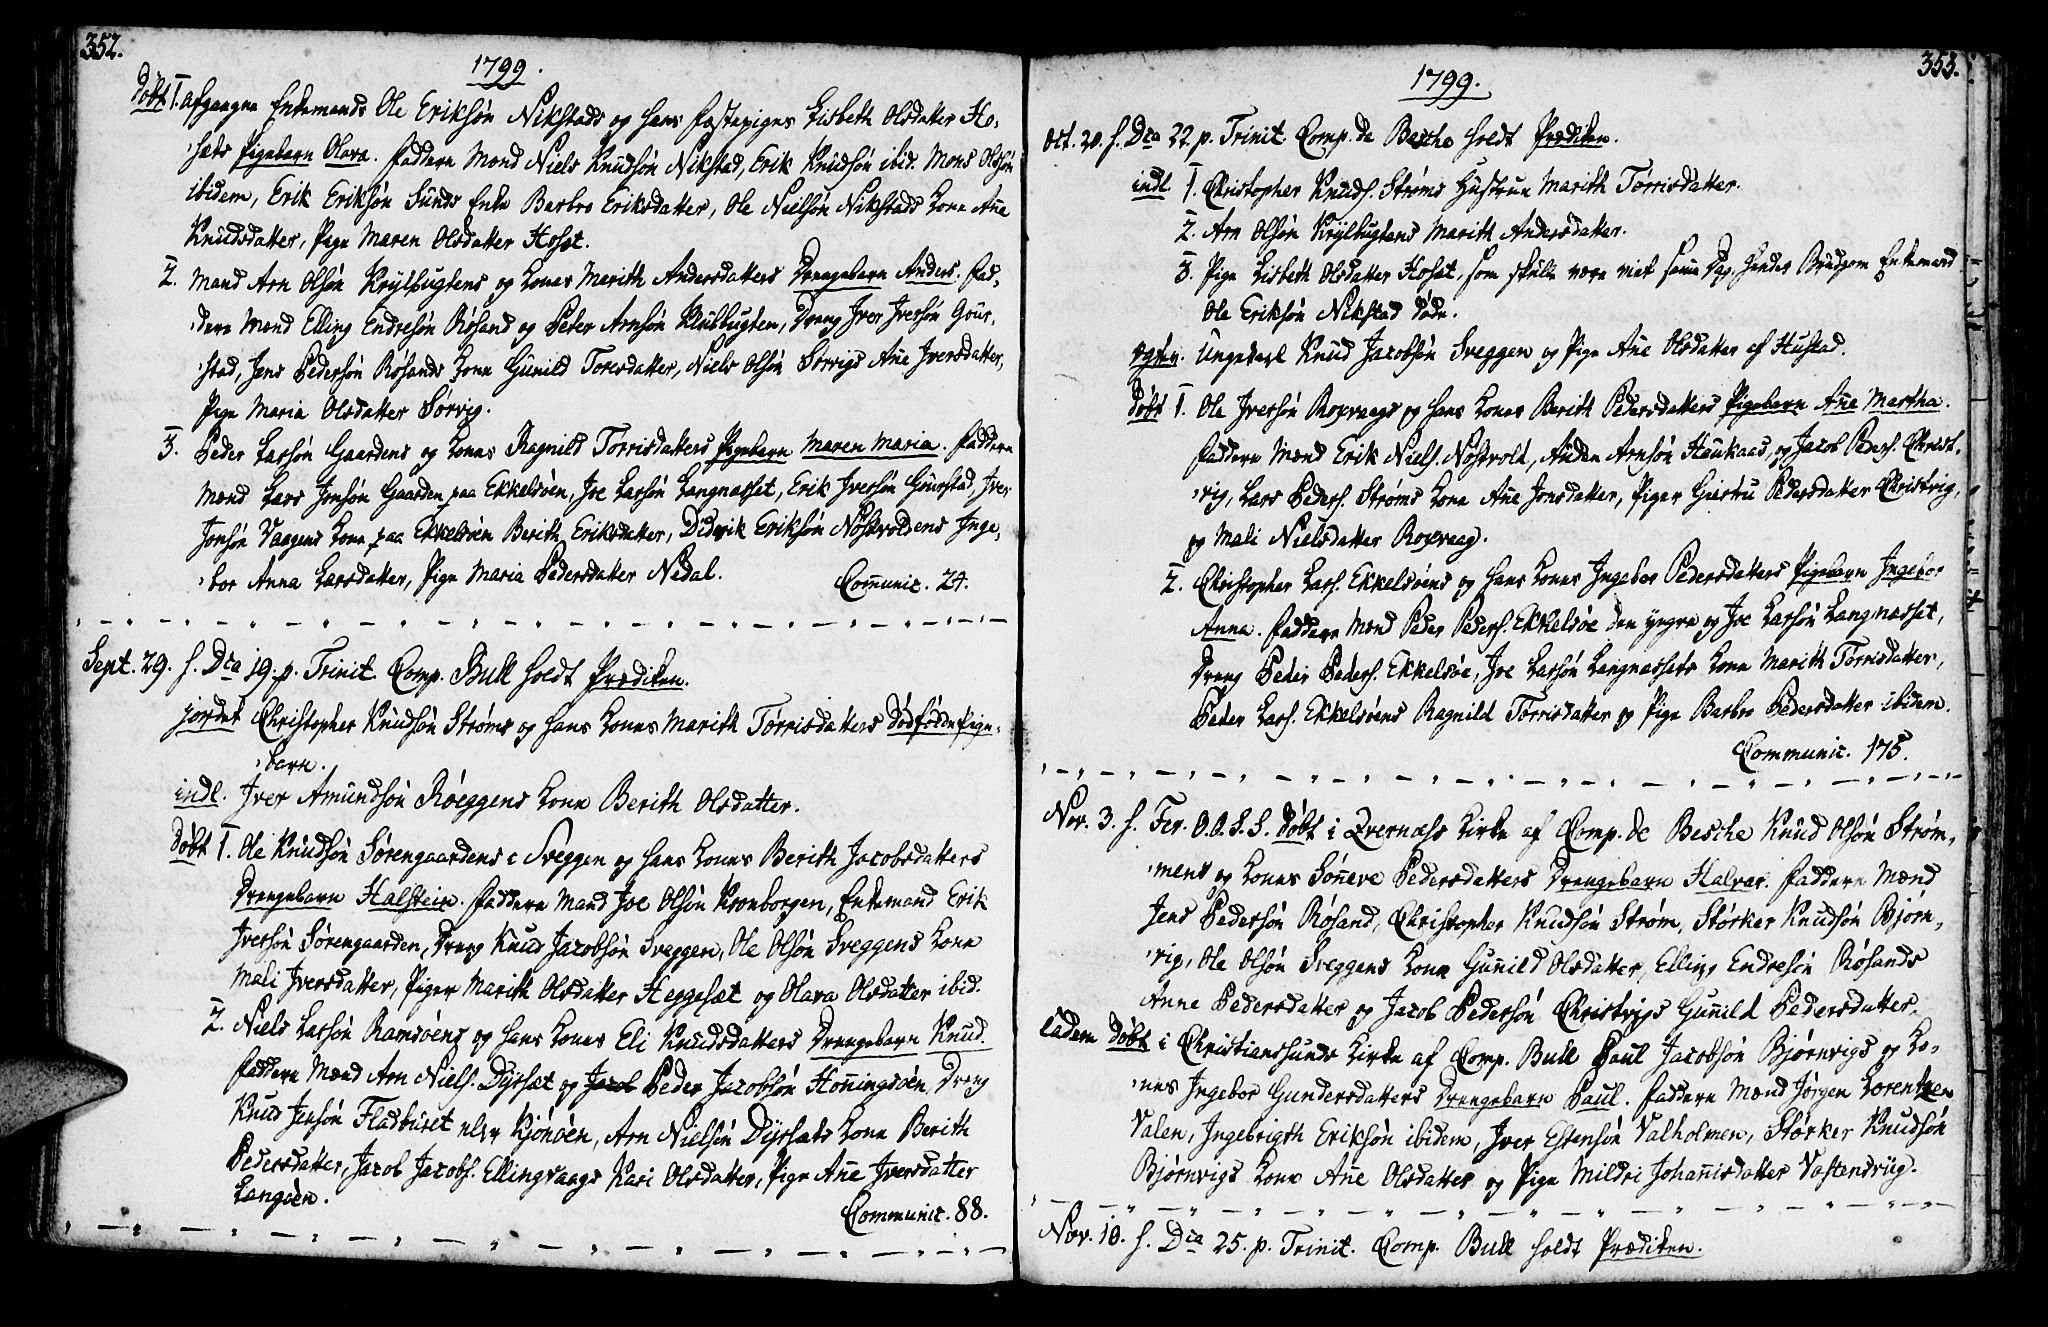 352.
1799.
Døbt 1. afgangne Enkemands Ole Eriksön Nikstads og hans Fæstepiges Lisbeth Olsdatter Ho-
sæts Pigebarn Olava. Faddere Mænd Niels Knudsön Nikstad, Erik Knudsön ibid. Mons Olsön
ibidem, Erik Eriksön Sunds Enke Barbro Eriksdatter, Ole Nielsön Nikstads Kone Ane
Knudsdatter, Pige Maren Olsdatter Hosæt.
2. Mand Arn Olsön Krylbugtens og Kones Marith Andersdatters Drengebarn Anders. Fad-
dere Mænd Elling Endresön Rösand og Peder Arnsön Klubbugten, Dreng Iver Iversön Gour-
stad, Jens Pedersön Rösands Kone Gunild Torisdatter, Niels Olsön Sörvigs Ane Iversdatter,
Pige Maria Olsdatter Sörvig.
3. Peder Larsön Gaardens og Kones Ragnild Torrisdatters Pigebarn Maren Maria. Faddere
Mænd Lars Jonsön Gaarden paa Ekkelsöen, Joe Larsön Langnæsset, Erik Iversön Gourstad, Iver
Jonsön Vaagens Kone paa Ekkelsöen Berith Eriksdatter, Didrik Eriksön Nostvoldens Inge-
bor Anna Larsdatter, Pige Maria Pedersdatter Nedal. Communic. 24.
Sept. 29. h. Dca 19. p. Trinit. Comp. Bull holdt Prædiken.
jordet Christopher Knudsön Ströms og hans Kones Marith Törrisdatters Dödfödde Pige-
barn.
indl. Iver Amundsön Röeggens Kone Berith Olsdatter.
Döbt 1. Ole Knudsön Sörengaardens i Sveggen og hans Kones Berith Jacobsdatters
Drengebarn Halstein. Faddere Mand Joe Olsön Kronborgen, Enkemand Erik
Iversön Sörengaarden, Dreng Knud Jacobsön Sveggen, Ole Olsön Sveggens Kone
Mali Iversdatter, Piger Marith Olsdatter Heggesæt og Olava Olsdatter ibid.
2. Niels Larsön Ramsöens og hans Kones Eli Knudsdatters Drengebarn Knud.
Faddere Mænd Arn Niels. Dyrsæt og Jacob Peder Jacobsön Honningsöen, Dreng
Knud Jensön Fladsuset eller Kjönöen, Arn Nielsön Dyrsæts Kone Berith
Pedersdatter, Jacob Jacobs. Ellingvaags Kari Olsdatter, Pige Ane Iversdatter
Langöen.
Communic. 88.
353.
1799.
Oct. 20. h. Dca 22. p. Trinit. Comp. de Besche holdt Prædiken.
indl. 1. Christopher Knuds. Ströms Hustrue Marith Törrisdatter.
2. Arn Olsön Krylbugtens Marith Andersdatter.
3. Pige Lisbeth Olsdatter Hosæt, som skulle være viet samme Dag, hendes Brudgom Enkemand
Ole Eriksön Nikstad döde.
Ungekarl Knud Jacobsön Sveggen og Pige Ane Olsdatter af Hustad.
Döbt 1. Ole Iversön Roxvaags og hans Kones Berith Pedersdatters Pigebarn Ane Martha.
Faddere Mænd Erik Niels. Nostvold, Anden Arnsön Haukaas, og Jacob Peders. Christ-
vig, Lars Peders. Ströms Kone Ane Jonsdatter, Piger Giertru Pedersdatter Christvig,
og Mali Nielsdatter Roxvaag.
2. Christopher Lars. Ekkelsöens og hans Kones Ingebor Pedersdatters Pigebarn Ingebor
Anna. Faddere Mænd Peder Peders. Ekkelsöe den yngre og Joe Larsön Langnæsset,
Dreng Peder Peders. Ekkelsöe, Joe Larsön Langnæssets Kone Marith Torrisdatter,
Peder Lars. Ekkelsöens Ragnild Törrisdatter og Pige Barbro Pedersdatter ibidem.
Communic. 175.
Nov. 3. h. Fer. O.O.S.S. Döbt i Qvernæss Kirke af Comp. de Besche Knud Olsön Ström-
mens og Kones Sönneve Pedersdatters Drengebarn Halvar. Faddere Mænd
Jens Pedersön Rösand, Christopher Knudsön Ström, Störker Knudsön Bjørn-
vig, Ole Olsön Sveggens Kone Gunild Olsdatter, Elling Endresön Rösands
Anne Pedersdatter og Jacob Pedersön Christvigs Gunild Pedersdatter.
Eadem Döbt i Christiansunds Kirke af Comp. Bull Paul Jacobsön Bjørnvigs og Ko-
nes Ingebor Gundersdatters Drengebarn Paul. Faddere Mænd Jörgen Lorentzen
Valen, Ingebrigth Eriksön ibidem, Iver Estensön Valholmen, Störker Knudsön
Bjørnvigs Kone Ane Olsdatter og Pige Mildri Johannisdatter Vastendrüg.
Nov. 10. h. Dca 25. p. Trinit. Comp. Bull holdt Prædiken.